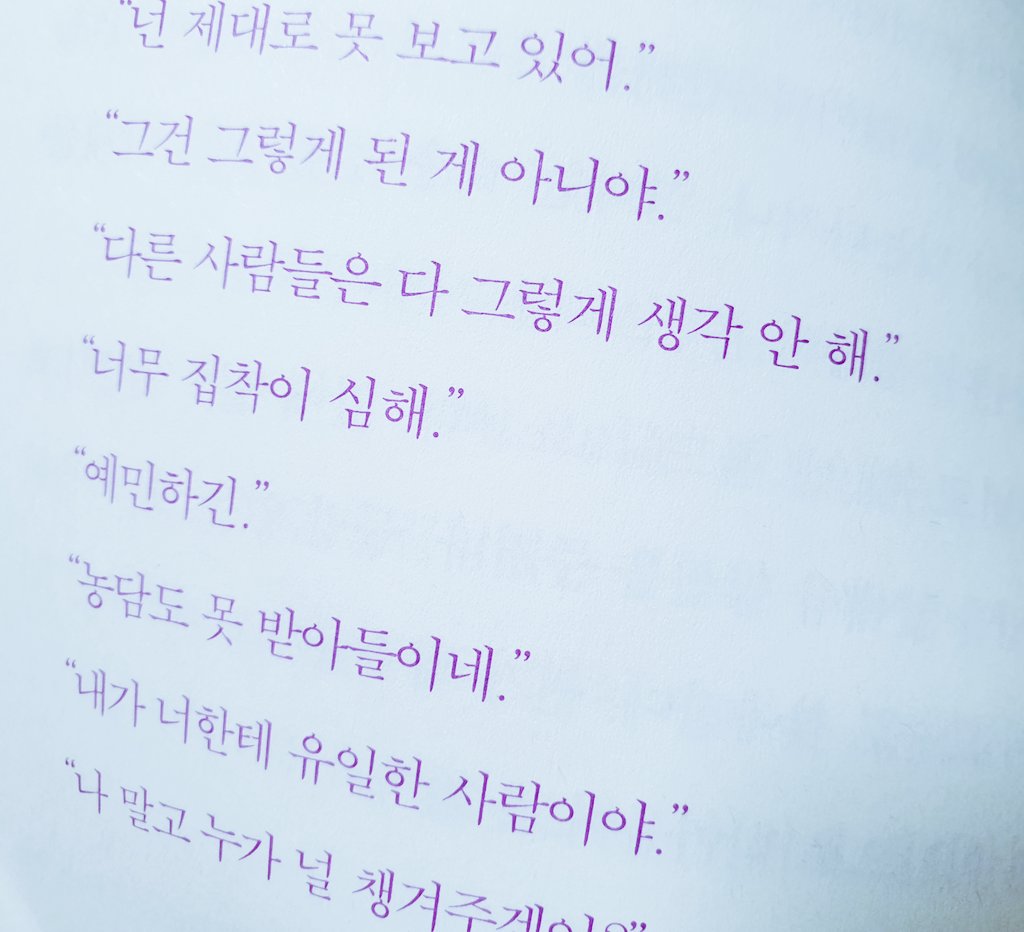 “넌 제대로 못 보고 있어.”
“그건 그렇게 된 게 아니야.”
“다른 사람들은 다 그렇게 생각 안 해.”
“너무 집착이 심해.”
“예민하긴.”
“농담도 못 받아들이네.”
“내가 너한테 유일한 사람이야.”
“나 말고 누가 널 챙겨주겠어?”